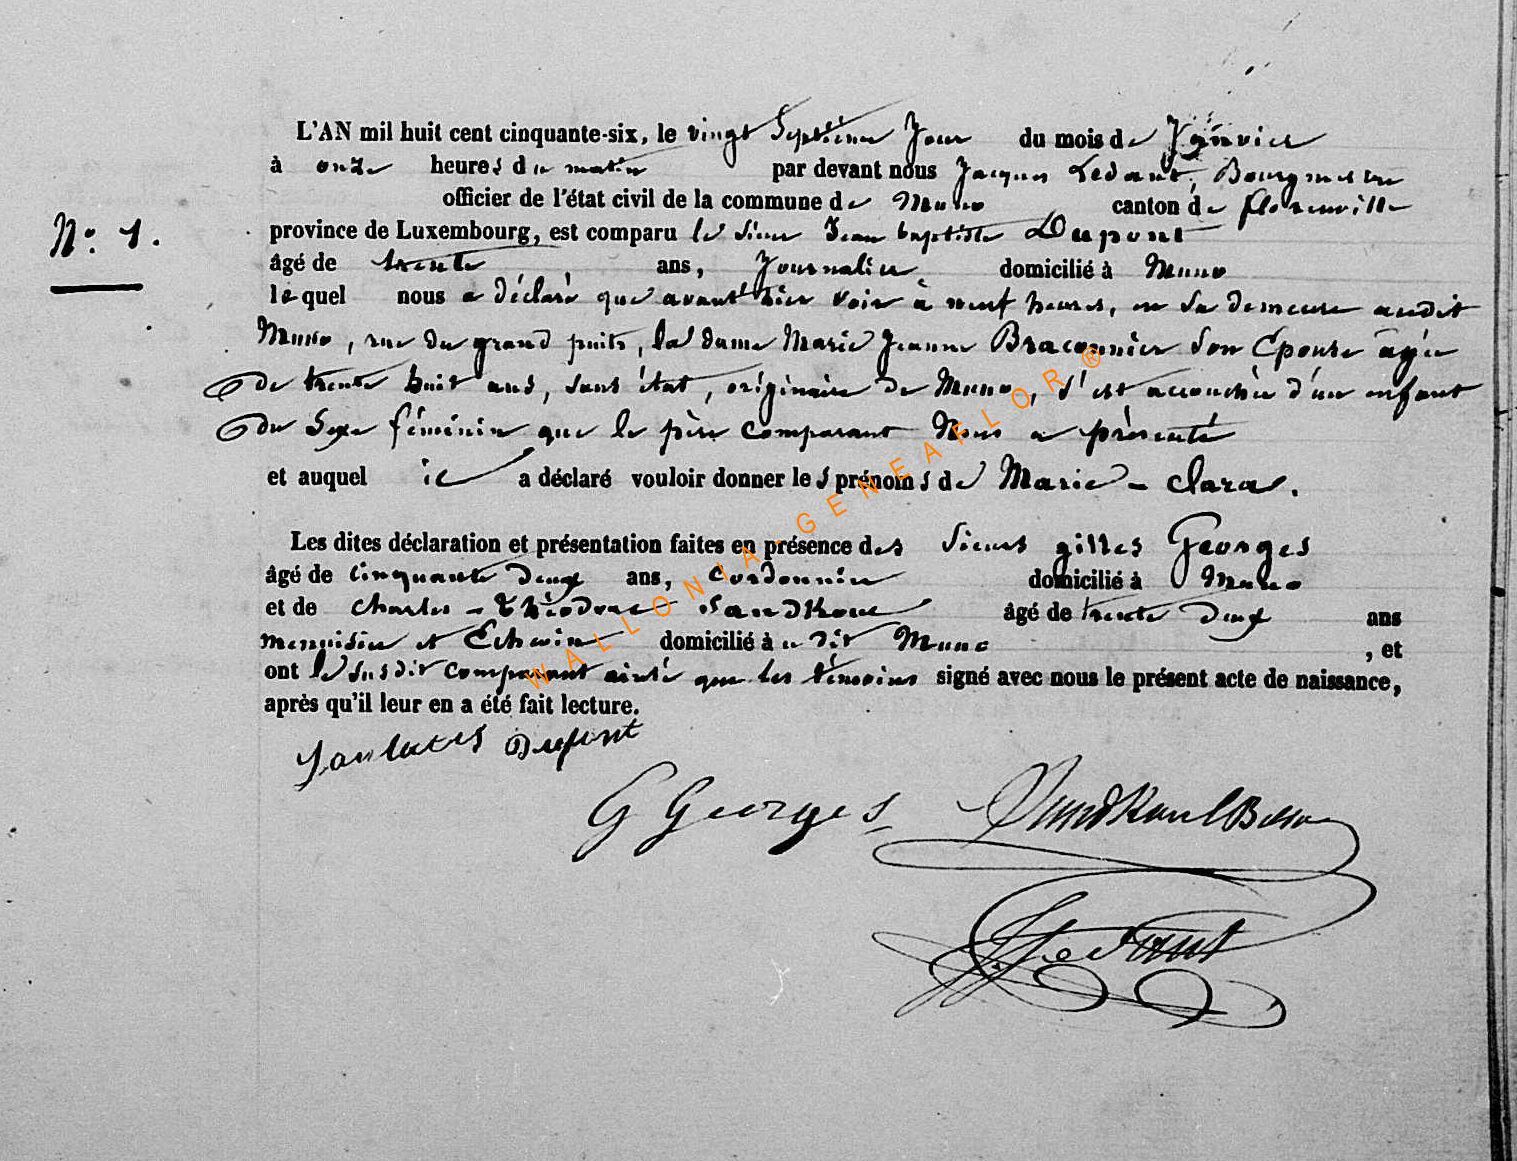 L'AN mil huit cent cinquante-six, le vingt Septième Jour du mois de Janvier
à onze heures du matin par devant nous Jacques Ledant, Bourgmestre
officier de l'état civil de la commune de Muno canton de florenville
N.o 1.
province de Luxembourg, est comparu le Sieur Jean baptiste Dupont
âgé de trente ans, Journalier domicilié à Muno
lequel nous a déclaré que avant hier soir à neuf heures, en sa demeure audit
Muno, rue du grand puits, la dame Marie Jeanne Braconnier son Epouse âgée
de trente huit ans, sans état, originaire de Muno, s'est accouchée d'un enfant
du Sexe féminin que le père comparant Nous a présenté
et auquel il a déclaré vouloir donner les prénoms de Marie - Clara.
Les dites déclaration et présentation faites en présence des Sieurs gilles Georges
âgé de cinquante deux ans, cordonnier domicilié à Muno
et de Charles - Théodore âgé de trente deux ans
menuisier et Echevin domicilié à u dit Muno , et
ont le susdit comparant ainsi que les témoins signé avec nous le présent acte de naissance,
après qu'il leur en a été fait lecture.
Dupont
G Georges
Ledant
WALLONIA-GENEAFLOR®